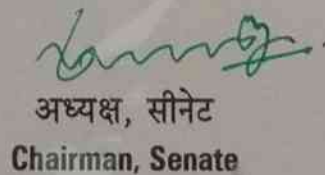 अध्यक्ष, सीनेट
Chairman, Senate